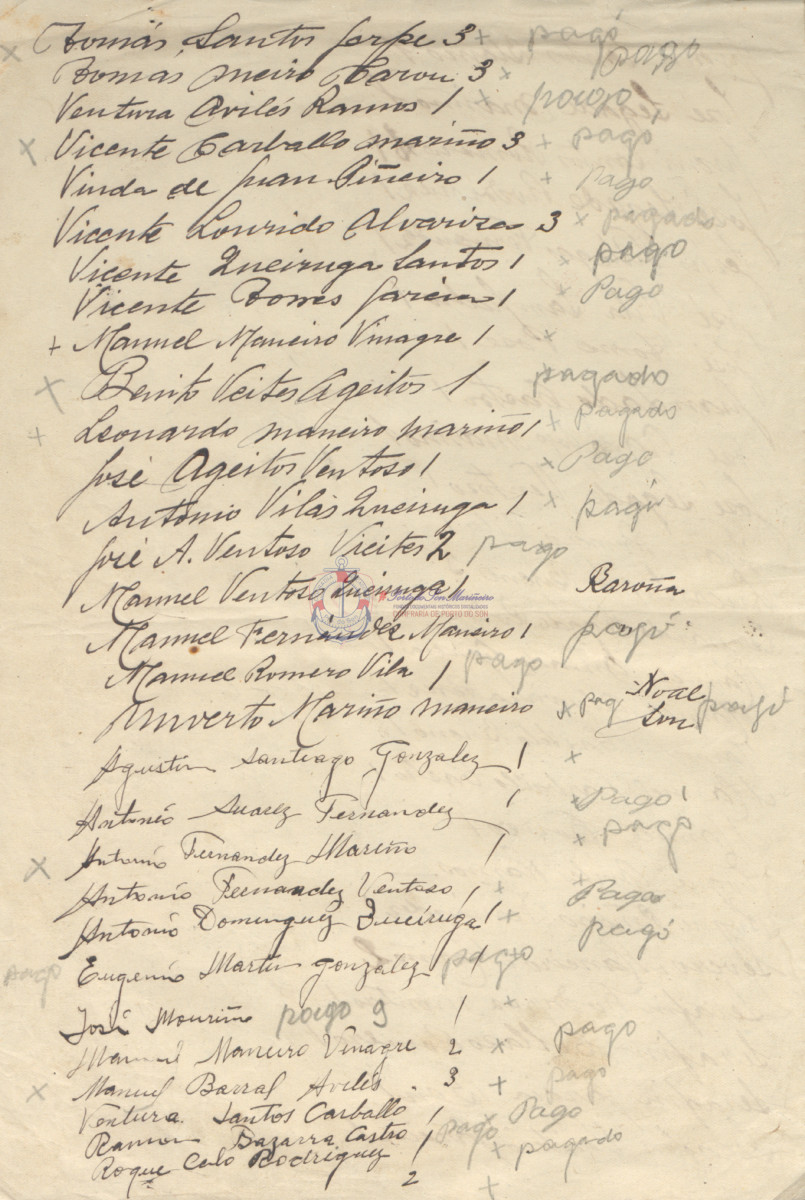 x Tomás Santos Jerpe 3 + pagó
Tomas Meiro Carou 3 x pago
Ventura Avilés Ramos 1 + pago
x Vicente Carballo mariño 3 + pago
Viuda de Juan Piñeiro 1 + Pago
Vicente Lourido Alvariza 3 x pagado
Vicente Queiruga Santos 1 x pago
Vicente Torres García 1 x Pago
+ Manuel Maneiro Vinagre 1 x
+ Benito Veites Ageitos 1 pagado
+ Leonardo maneiro mariño 1 + pagado
José Ageitos Ventoso 1 x Pago
Antonio Vilas Queiruga 1 x pagó
José A. Ventoso Vieites 2 pago
Manuel Ventoso Queiruga 1 Baroña
Portodo Son Mariñeiro
COFRARÍA DE PORTO DO SON
Manuel Fernández Maneiro 1 pagó
Manuel Romero Vila 1 pago
Umverto Mariño maneiro x pag Noal Son pagó
Agustin Santiago Gonzalez 1 x
Antonio Suarez Fernandez 1 x Pago 1
x Antonio Fernandez Mariño 1 x pago
Antonio Fernandez Ventoso 1 + Pago
Antonio Dominguez Queiruga 1 + pagó
pago Eugenio Martin gonzalez 1 pago
José Mouriño pago 9 1 x
Manuel Maneiro Vinagre 2 x pago
x Manuel Barral Aviles . 3 + pago
Ventura Santos Carballo 1 x Pago
Ramon Bazarra Castro 1 pago + pagado
Roque Celo Rodriguez 2 +